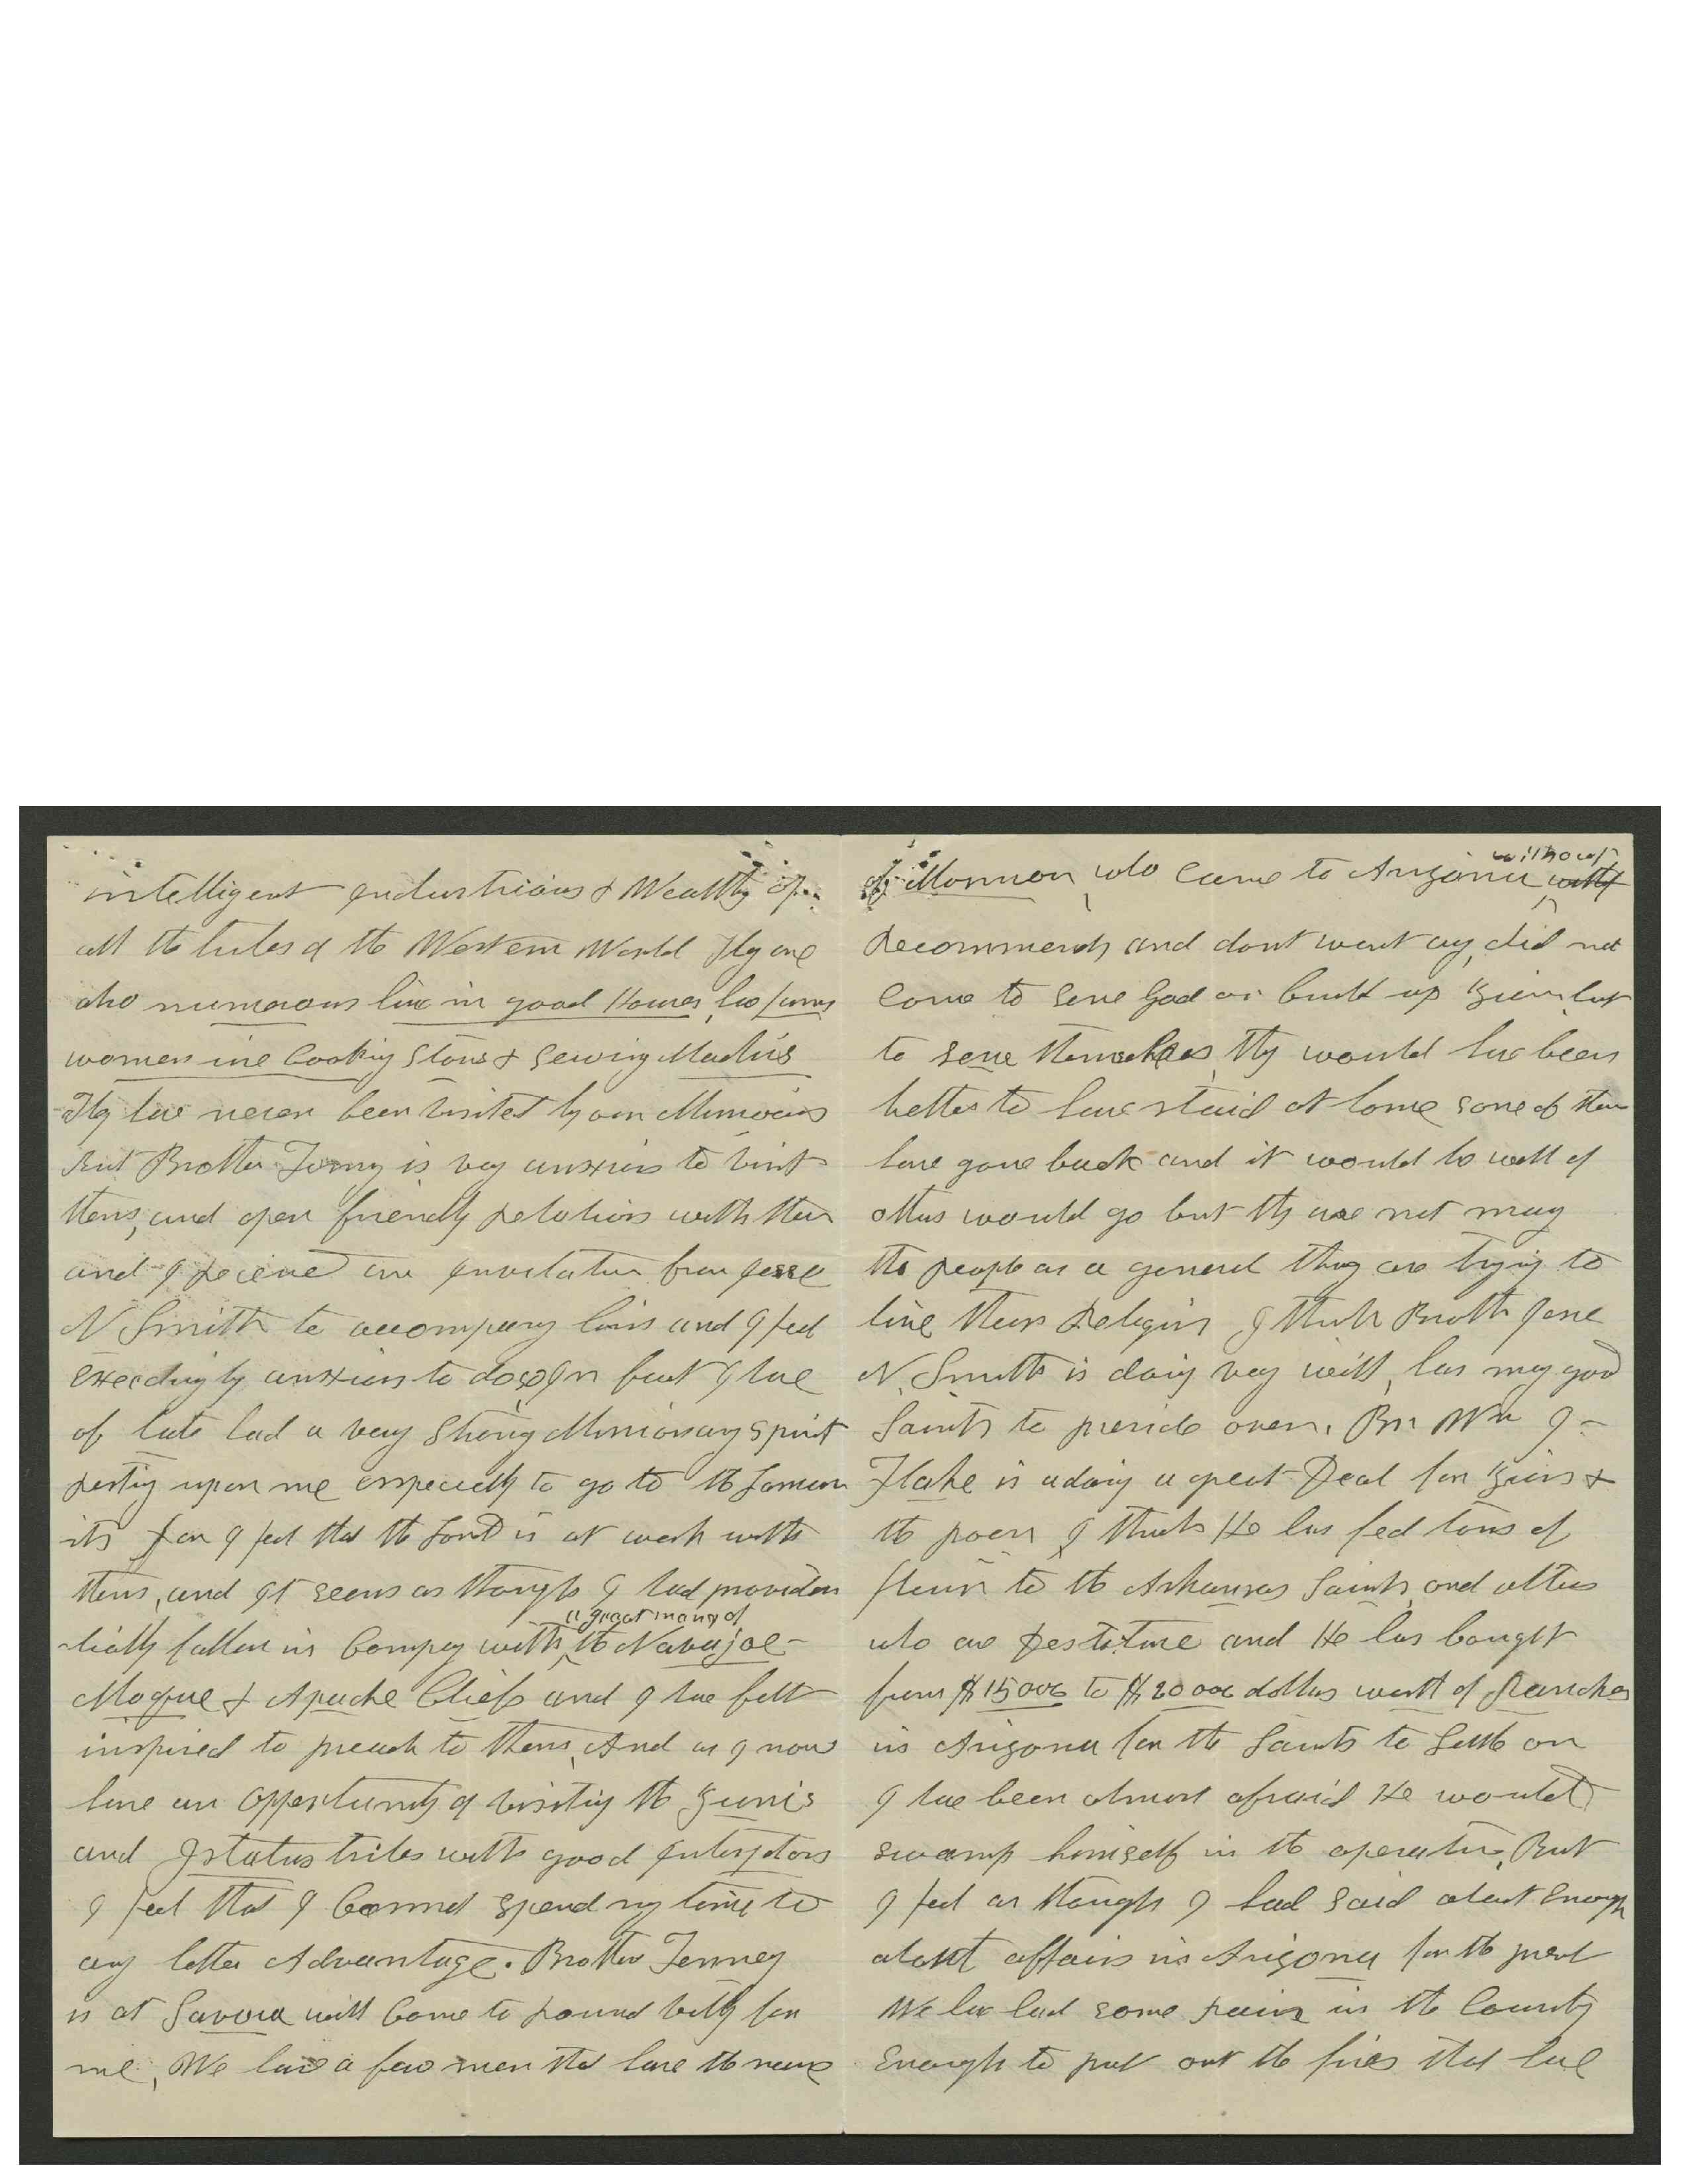 intelligent Industrious & Wealthy of
all the tribes of the Western World They are
also numerous live in good Houses, have farms
women use Cooking Stoves & Sewing Machines
They have never been visited by our Missionaries
But Brother Tenny is very anxious to visit
them, and open friendly relations with them
and I received an Invitation from Jesse
N Smith to accompany him and I feel
exceedingly anxious to do so In fact I have
of late had a very Strong Missionary Spirit
resting upon me especially to go to the Laman
ites for I feel that the Lord is at work with
them, and It seems as though I had providen
-tially fallen in Company with a great many of the Navajoe-
Moquie & Apache Chiefs and I have felt
inspired to preach to them, And as I now
have an Opportunity of visiting the Zunis
and Istatus tribes with good Interpretors
I feel that I Cannot Spend my time to
any better Advantage. Brother Tenney
is at Savoia will Come to round vally for
me, We have a few men that have the name
of Mormon who came to Arizona without with
Recommends and dont want any, did not
Come to Serve God or build up Zion but
to serve themselves They would have been
better to have staid at home some of them
have gone back and it would be well if
others would go but they are not many
the people as a general thing are trying to
live their Religion I think Brother Jesse
N. Smith is doing very well, has many good
Saints to preside over. Br Wm J-
Flake is adoing a great Deal for Zion &
the poor I think He has fed tons of
flour to the Arkansas Saints and others
who are Destitute and He has bought
from $15000 to $20000 dollars worth of Ranches
in Arizona for the Saints to Settle on
I have been almost afraid He would
swamp himself in the operation, But
I feel as though I had said about Enough
about affairs in Arizona for the present
We have had some rain in the County
Enough to put out the fires that have